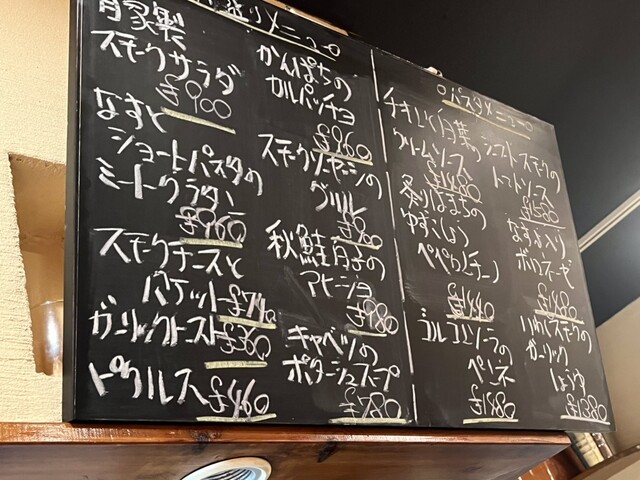 メニュー
自家製
スモークサラダ
£900
なすと
ショートパスタの
ミートグラタン
£960
スモークチーズと
バゲット £740
ガーリックトースト £360
ピクルス £460
かんぱちの
カルパッチョ
£960
スモークソーセージの
グリル
秋鮭白子の
アヒージョ
£980
キャベツの
ポタージュスープ
£780
○パスタメニュー○
白菜の
クリームソース
£1480
炙りはまちの
ゆずこしょう
ペペロンチーノ
£1440
ゴルゴンゾーラの
ペンネ
£1580
スモークの
トマトソース
£1580
なす入り
ボロネーゼ
£1480
スモークの
ガーリック
しょうゆ
£1380